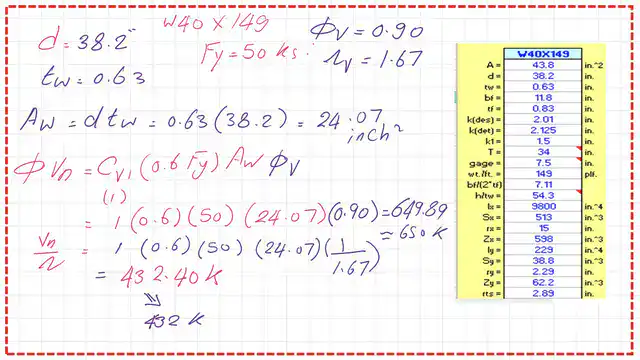 W40X149
d = 38.2"
Fy = 50 ksi
ΦV = 0.90
ΩV = 1.67
tw = 0.63
Aw = d tw = 0.63 (38.2) = 24.07 inch²
Φ Vn = Cv1 (0.6 Fy) Aw ΦV
(1)
= 1 (0.6) (50) (24.07) (0.90) = 649.89
≈ 650 K
Vn/Ω = 1 (0.6) (50) (24.07) (1/1.67)
= 432.40 K
432 K
W40X149
A = 43.8 in.^2
d = 38.2 in.
tw = 0.63 in.
bf = 11.8 in.
tf = 0.83 in.
k(des) = 2.01 in.
k(det) = 2.125 in.
k1 = 1.5 in.
T = 34 in.
gage = 7.5 in.
wt./ft. = 149 plf.
bf/(2*tf) = 7.11
h/tw = 54.3
Ix = 9800 in.^4
Sx = 513 in.^3
rx = 15 in.
Zx = 598 in.^3
Iy = 229 in.^4
Sy = 38.8 in.^3
ry = 2.29 in.
Zy = 62.2 in.^3
rts = 2.89 in.